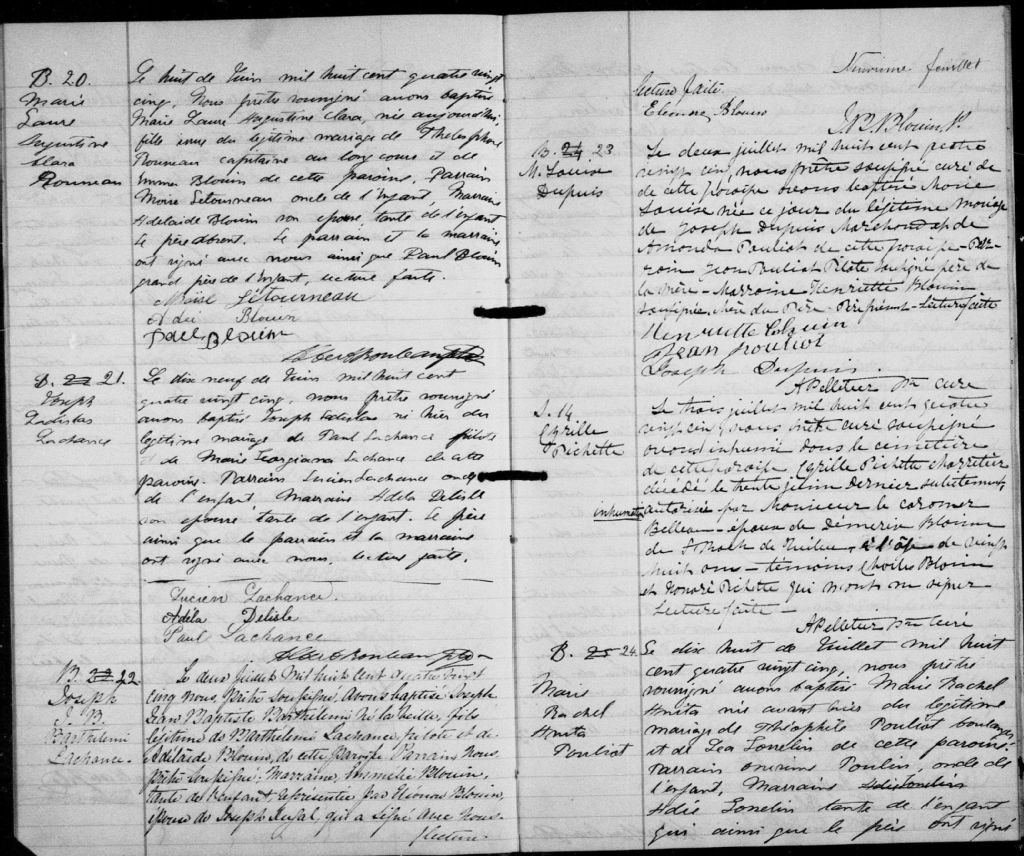 B. 20.
Marie
Laure
Augustine
Clara
Pouneau
Le huit de Juin mil huit cent quatre vingt
cinq, Nous prêtre soussigné avons baptisé
Marie Laure Augustine Clara, née aujourd'hui
fille issue du légitime mariage de Thelesphore
Pouneau capitaine au long cours et de
Emma Blouin de cette paroisse. Parrain
Moïse Letourneau oncle de l'enfant, Marraine
Adelaide Blouin son épouse tante de l'enfant
le père absent. Le parrain et la marraine
ont signé avec nous ainsi que Paul Blouin
grand père de l'enfant, lecture faite.
Moïse Létourneau
Adèl Blouin
Paul Blouin
B. 22 21.
Joseph
Ladislas
Lachance
Le dix neuf de Juin mil huit cent
quatre vingt cinq, nous prêtre soussigné
avons baptisé Joseph Ladislas né hier du
légitime mariage de Paul Lachance pilote
et de Marie Georgiana Lachance de cette
paroisse. Parrain Lucien Lachance oncle
de l'enfant Marraine Adela Delisle
son épouse tante de l'enfant. Le père
ainsi que le parrain et la marraine
ont signé avec nous. lecture faite.
Lucien Lachance.
Adéla Delisle
Paul Lachance
B. 23 22.
Joseph
J. B.
Barthélemi
Lachance.
Le deux Juillet Mil huit cent quatre vingt
cinq nous, Prêtre soussigné, avons baptisé Joseph
Jean Baptiste Barthélemi né la veille, fils
légitime de Barthélemi Lachance, pilote et de
Adélaïde Blouin, de cette Paroisse Parrain Nous
Prêtre soussigné; Marraine, Emmélie Blouin,
tante de l'enfant, représentée par Eléonore Blouin,
épouse de Joseph, qui a signé avec Nous.
lecture
Neuvième feuillet
lecture faite.
Eleonore Blouin
N. Blouin, P.
B. 24 23
M. Louise
Dupuis
Le deux juillet mil huit cent quatre
vingt cinq, nous prêtre soussigné curé de
de cette paroisse avons baptisé Marie
Louise née ce jour du légitime mariage
de Joseph Dupuis Marchand et de
Amanda Pouliot de cette paroisse - Par-
rain Jean Pouliot Pilote soussigné père de
la mère - Marraine Henriette Blouin
soussignée, du Père - Père présent - Lecture faite
Henriette Blouin
Jean Pouliot
Joseph Dupuis.
A Pelletier Ptre curé
S. 14
Cyrille
Pichette
Le trois juillet mil huit cent quatre
vingt cinq nous prêtre curé soussigné
avons inhumé dans le cimetière
de cette paroisse Cyrille Pichette charretier
décédé le trente juin dernier subitement
inhumation autorisée par Monsieur le coroner
Belleau - époux de Démerise Blouin
de St Roch de Québec, à l'âge de vingt
huit ans - témoins Blouin
et Honoré Pichette qui n'ont su signer
Lecture faite -
A Pelletier Ptre Curé
B. 25 24.
Marie
Rachel
Anita
Pouliot
Le dix huit de Juillet mil huit
cent quatre vingt cinq, nous prêtre
soussigné avons baptisé Marie Rachel
Anita née avant hier du légitime
mariage de Théophile Pouliot boulanger
et de Léa Gosselin de cette paroisse.
Parrain Pouliot, oncle de
l'enfant, Marraine
Adée Gosselin tante de l'enfant
qui ainsi que le père ont signé